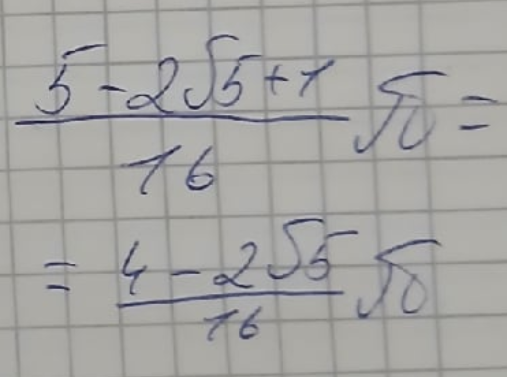 (5 - 2√5 + 1)/16 π =
= (4 - 2√5)/16 π